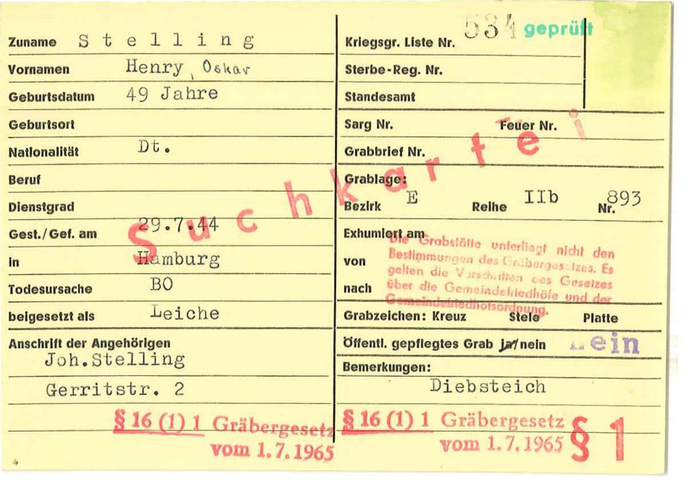 Zuname Stelling
Vornamen Henry, Oskar
Geburtsdatum 49 Jahre
Geburtsort
Nationalität Dt.
Beruf
Dienstgrad
Gest./Gef. am 29.7.44
in Hamburg
Todesursache BO
beigesetzt als Leiche
Anschrift der Angehörigen
Joh.Stelling
Gerritstr. 2
§ 16 (1) 1 Gräbergesetz
vom 1.7.1965
Suchkartei
Kriegsgr. Liste Nr. 534 geprüft
Sterbe-Reg. Nr.
Standesamt
Sarg Nr. Feuer Nr.
Grabbrief Nr.
Grablage:
Bezirk E Reihe IIb Nr. 893
Exhumiert am
von
nach
Die Grabstätte unterliegt nicht den
Bestimmungen des Gräbergesetzes. Es
gelten die Vorschriften des Gesetzes
über die Gemeindefriedhöfe und der
Gemeindefriedhofsordnung.
Grabzeichen: Kreuz Stele Platte
Öffentl. gepflegtes Grab ja/nein nein
Bemerkungen:
Diebsteich
§ 16 (1) 1 Gräbergesetz
vom 1.7.1965
§ 1